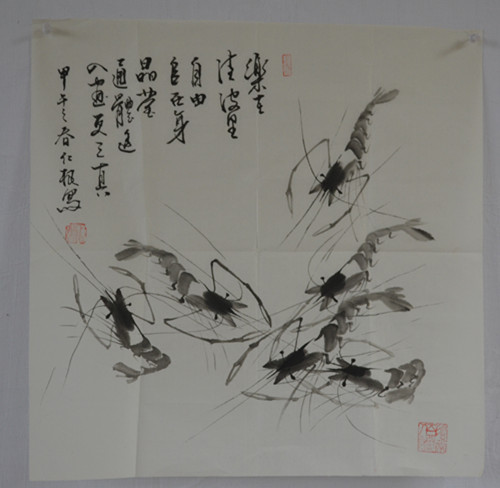 樂在
清波里
自由
自在身
晶瑩
通體透
入畫更真
甲午之春仁根寫